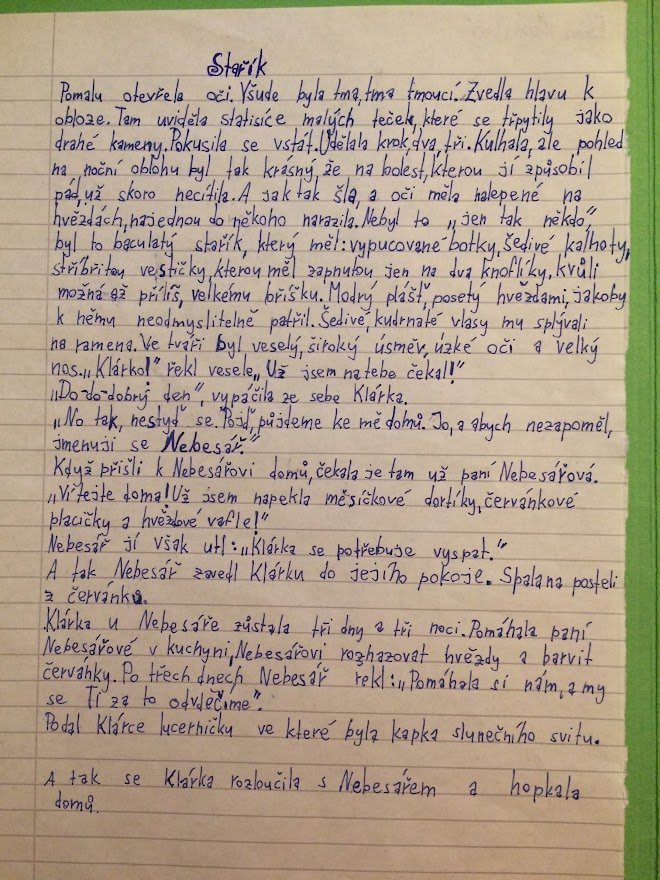 Stařík
Pomalu otevřela oči. Všude byla tma, tma tmoucí. Zvedla hlavu k
obloze. Tam uviděla statisíce malých teček, které se třpytily jako
drahé kameny. Pokusila se vstát. Udělala krok, dva, tři. Kulhala, ale pohled
na noční oblohu byl tak krásný, že na bolest, kterou jí způsobil
pád, už skoro necítila. A jak tak šla, a oči měla nalepené na
hvězdách, najednou do někoho narazila. Nebyl to „jen tak někdo",
byl to baculatý stařík, který měl: vypucované botky, šedivé kalhoty,
stříbřitou vestičky, kterou měl zapnutou jen na dva knoflíky, kvůli
možná až příliš, velkému bříšku. Modrý plášť, posetý hvězdami, jakoby
k němu neodmyslitelně patřil. Šedivé, kudrnaté vlasy mu splývali
na ramena. Ve tváři byl veselý, široký úsměv, úzké oči a velký
nos. „Klárko!" řekl vesele „Už jsem na tebe čekal!"
„Do-do-dobrý den", vypáčila ze sebe Klárka.
„No tak, nestyď se. Pojď, půjdeme ke mě domů. Jo, a abych nezapoměl,
jmenuji se Nebesář."
Když přišli k Nebesářovi domů, čekala je tam už paní Nebesářová.
„Vítejte doma! Už jsem napekla měsíčkové dortíky, červánkové
placičky a hvězdové vafle!"
Nebesář jí však utl: „Klárka se potřebuje vyspat."
A tak Nebesář zavedl Klárku do jejího pokoje. Spala na posteli
z červánků.
Klárka u Nebesáře zůstala tři dny a tři noci. Pomáhala paní
Nebesářové v kuchyni, Nebesářovi rozhazovat hvězdy a barvit
červánky. Po třech dnech Nebesář řekl: „Pomáhala si nám, a my
se Ti za to odvděčíme".
Podal Klárce lucerničku ve které byla kapka slunečního svitu.
A tak se Klárka rozloučila s Nebesářem a hopkala
domů.